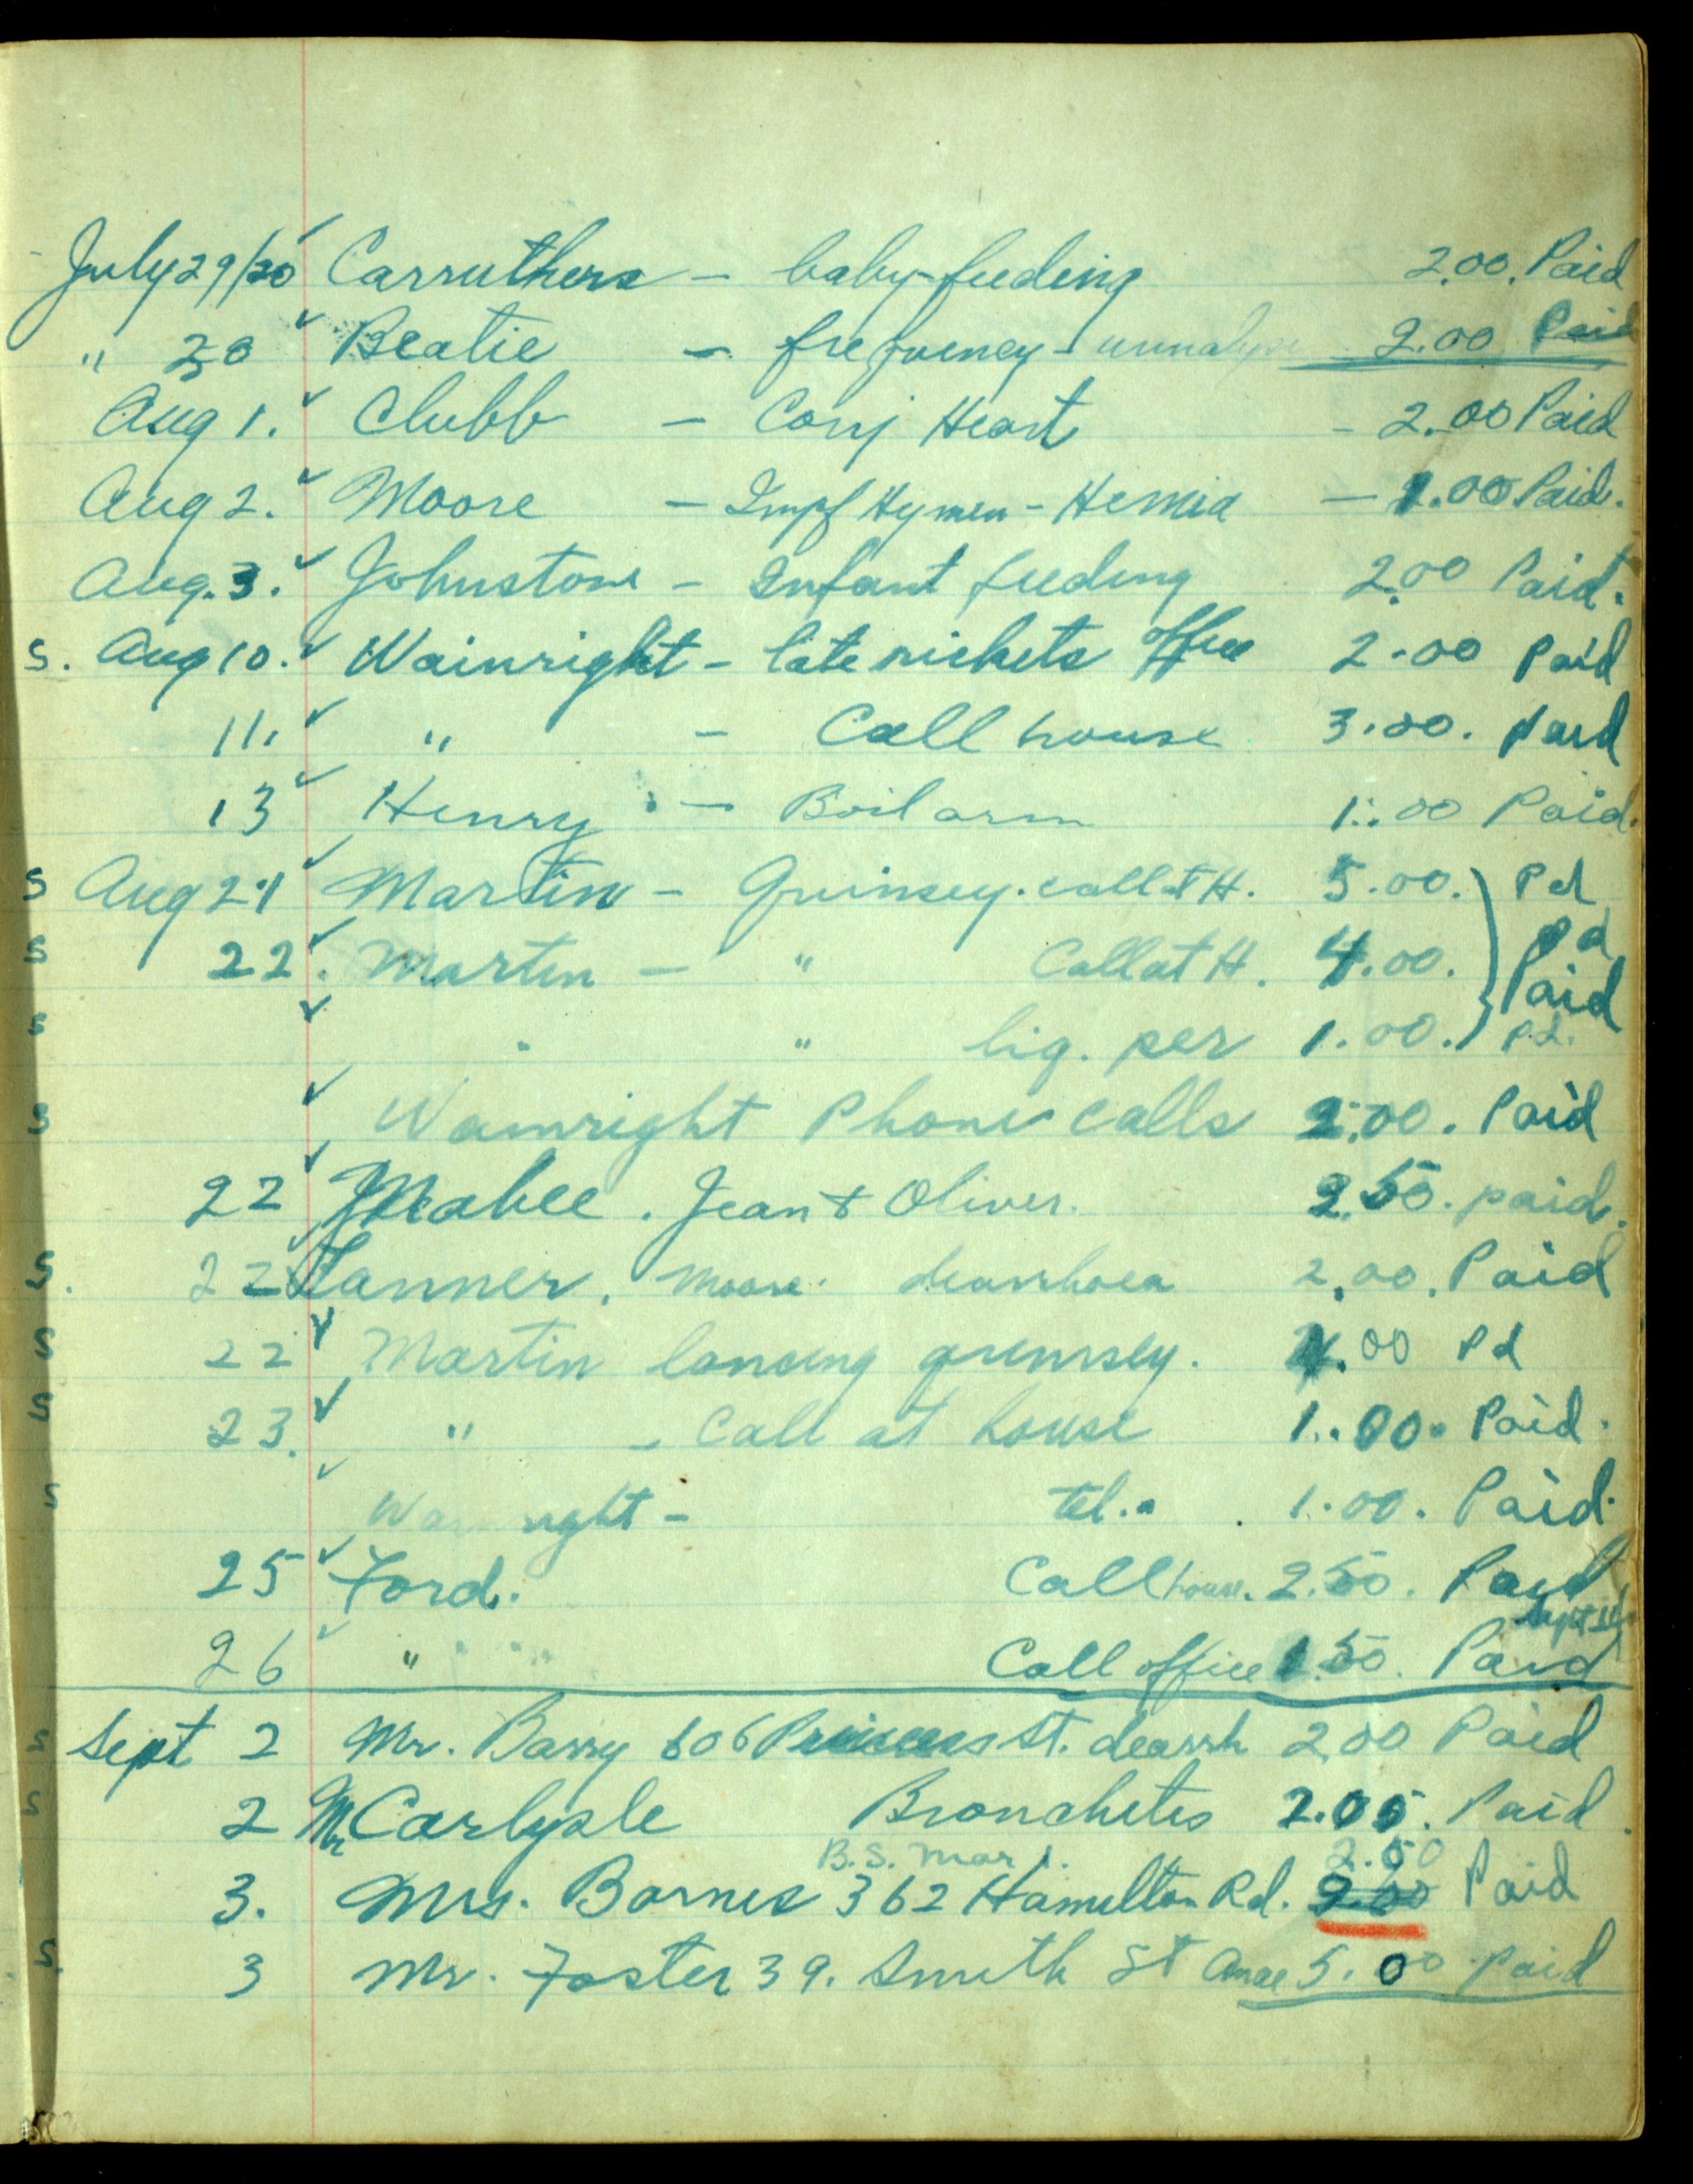 July 29/20 ✓ Carruthers - baby-feeding 2.00. Paid
" 30 ✓ Beatie - frequency - urinalysis 2.00 Paid
Aug 1. ✓ Clubb - Conj Heart - 2.00 Paid
Aug 2. ✓ Moore - Impf Hymen - Hernia - 1.00 Paid.
Aug. 3. ✓ Johnstone - Infant feeding 2.00 Paid.
S. Aug 10. ✓ Wainright - late rickets office 2.00 Paid
11. ✓ " - Call house 3.00. Paid
13 ✓ Henry - Boil arm 1.00 Paid.
S Aug 21 ✓ Martin - Quinsey. call at H. 5.00. Pd
S 22 ✓ Martin - " Call at H. 4.00. Pd
Paid
S ✓ " " lig. per 1.00. Pd.
S ✓ Wainright Phone calls 2.00. Paid
22 ✓ Mabee. Jean & Oliver. 2.50. paid.
S. 22 Tanner. Moore dearrhoea 2.00. Paid
S 22 ✓ Martin lancing quinsey. 4.00 Pd
S 23. ✓ " - Call at house 1.00. Paid.
S ✓ Wainright - tel. 1.00. Paid.
25 ✓ Ford. Call house. 2.50. Paid
Sept
26 ✓ " Call office 1.50. Paid
S Sept 2 Mr. Barry 606 Princess St. dearrh 2.00 Paid
S 2 Mr Carlysle Bronchetes 2.00. Paid.
B.S. Mar 2.50
3. Mrs. Barnes 362 Hamilton Rd. 2.00 Paid
S. 3 Mr. Foster 39. Smith St 5.00 Paid